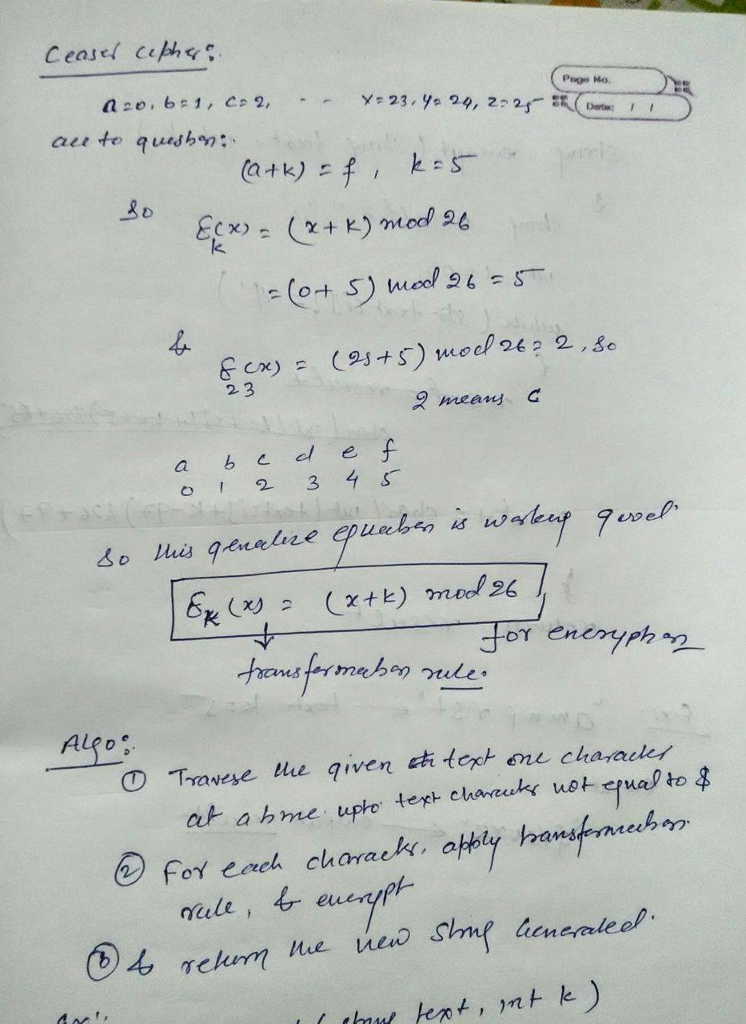 Ceaser cipher:
Page No.
Date: / /
a=0, b=1, c=2, - - x=23, y=24, z=25
acc to question:
(a+k) = f, k=5
So E_k(x) = (x+k) mod 26
= (0+5) mod 26 = 5
& E_23(x) = (23+5) mod 26 = 2, so
2 means c
a b c d e f
0 1 2 3 4 5
So this genalize equation is working good
E_k(x) = (x+k) mod 26
for encryption
transformation rule.
Algo:
① Travese the given text one character
at a time upto text character not equal to $
② For each character, apply transformation
rule, & encrypt
③ & return the new string Generated.
text, int k)